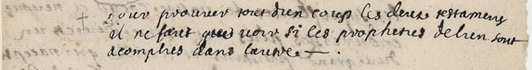 pour prouver tout d'un coup les deux testamens
il ne faut que voir si les propheties de l'un sont
acomplies dans l'autre.